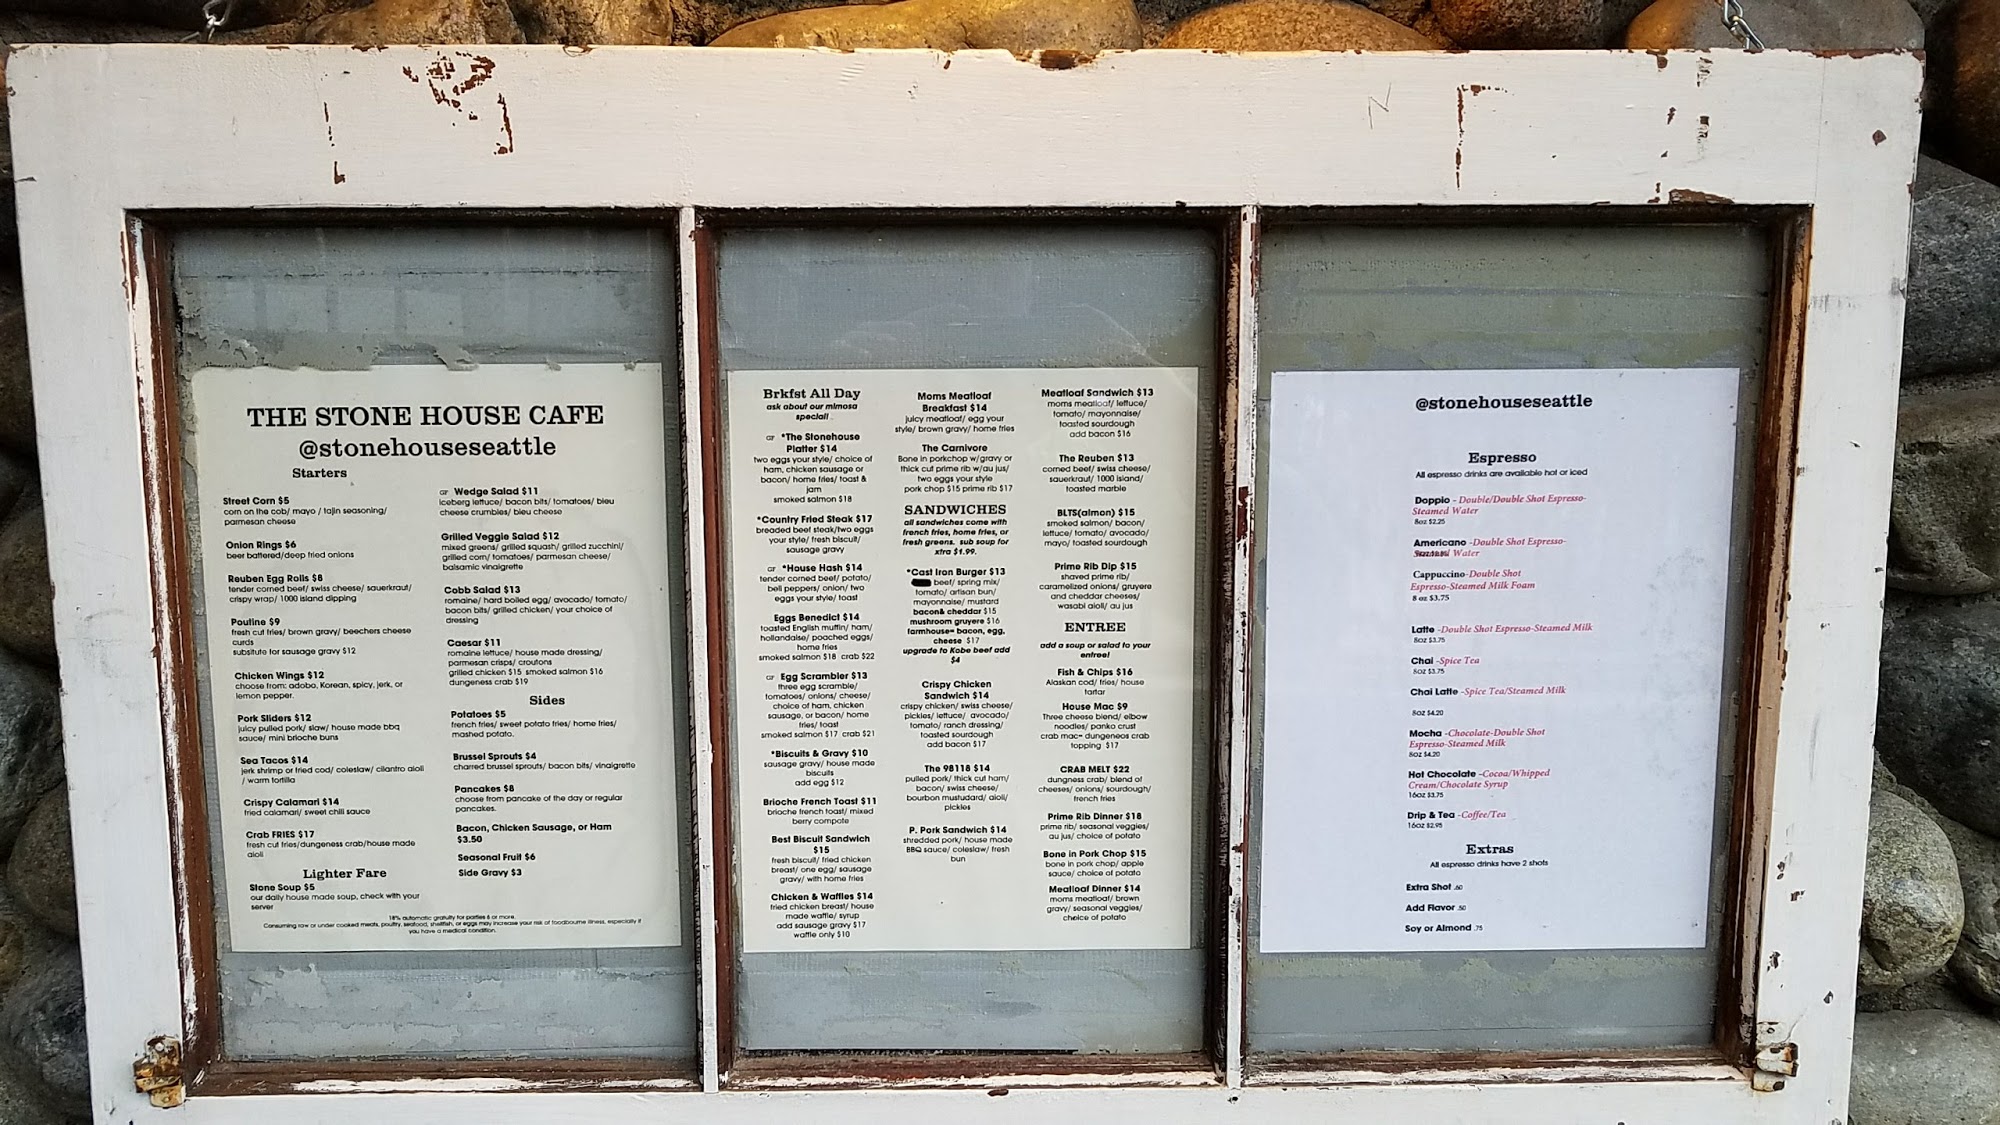 THE STONE HOUSE CAFE
@stonehouseseattle
Starters
Street Corn $5
corn on the cob/ mayo / tajin seasoning/
parmesan cheese
Onion Rings $6
beer battered/deep fried onions
Reuben Egg Rolls $8
tender corned beef/ swiss cheese/ sauerkraut/
crispy wrap/ 1000 island dipping
Poutine $9
fresh cut fries/ brown gravy/ beechers cheese
curds
subsitute for sausage gravy $12
Chicken Wings $12
choose from: adobo, Korean, spicy, jerk, or
lemon pepper.
Pork Sliders $12
juicy pulled pork/ slaw/ house made bbq
sauce/ mini brioche buns
Sea Tacos $14
jerk shrimp or fried cod/ coleslaw/ cilantro aioli
/ warm tortilla
Crispy Calamari $14
fried calamari/ sweet chili sauce
Crab FRIES $17
fresh cut fries/dungeness crab/house made
aioli
Lighter Fare
Stone Soup $5
our daily house made soup, check with your
server
GF Wedge Salad $11
iceberg lettuce/ bacon bits/ tomatoes/ bleu
cheese crumbles/ bleu cheese
Grilled Veggie Salad $12
mixed greens/ grilled squash/ grilled zucchini/
grilled corn/ tomatoes/ parmesan cheese/
balsamic vinaigrette
Cobb Salad $13
romaine/ hard boiled egg/ avocado/ tomato/
bacon bits/ grilled chicken/ your choice of
dressing
Caesar $11
romaine lettuce/ house made dressing/
parmesan crisps/ croutons
grilled chicken $15 smoked salmon $16
dungeness crab $19
Sides
Potatoes $5
french fries/ sweet potato fries/ home fries/
mashed potato.
Brussel Sprouts $4
charred brussel sprouts/ bacon bits/ vinaigrette
Pancakes $8
choose from pancake of the day or regular
pancakes.
Bacon, Chicken Sausage, or Ham
$3.50
Seasonal Fruit $6
Side Gravy $3
18% automatic gratuity for parties 6 or more.
Consuming raw or under cooked meats, poultry, seafood, shellfish, or eggs may increase your risk of foodbourne illness, especially if
you have a medical condition.
Brkfst All Day
ask about our mimosa
special!
GF *The Stonehouse
Platter $14
two eggs your style/ choice of
ham, chicken sausage or
bacon/ home fries/ toast &
jam
smoked salmon $18
*Country Fried Steak $17
breaded beef steak/two eggs
your style/ fresh biscuit/
sausage gravy
GF *House Hash $14
tender corned beef/ potato/
bell peppers/ onion/ two
eggs your style/ toast
Eggs Benedict $14
toasted English muffin/ ham/
hollandaise/ poached eggs/
home fries
smoked salmon $18 crab $22
GF Egg Scrambler $13
three egg scramble/
tomatoes/ onions/ cheese/
choice of ham, chicken
sausage, or bacon/ home
fries/ toast
smoked salmon $17 crab $21
*Biscuits & Gravy $10
sausage gravy/ house made
biscuits
add egg $12
Brioche French Toast $11
brioche french toast/ mixed
berry compote
Best Biscuit Sandwich
$15
fresh biscuit/ fried chicken
breast/ one egg/ sausage
gravy/ with home fries
Chicken & Waffles $14
fried chicken breast/ house
made waffle/ syrup
add sausage gravy $17
waffle only $10
Moms Meatloaf
Breakfast $14
juicy meatloaf/ egg your
style/ brown gravy/ home fries
The Carnivore
Bone in porkchop w/gravy or
thick cut prime rib w/au jus/
two eggs your style
pork chop $15 prime rib $17
SANDWICHES
all sandwiches come with
french fries, home fries, or
fresh greens. sub soup for
xtra $1.99.
*Cast Iron Burger $13
beef/ spring mix/
tomato/ artisan bun/
mayonnaise/ mustard
bacon& cheddar $15
mushroom gruyere $16
farmhouse= bacon, egg,
cheese $17
upgrade to Kobe beef add
$4
Crispy Chicken
Sandwich $14
crispy chicken/ swiss cheese/
pickles/ lettuce/ avocado/
tomato/ ranch dressing/
toasted sourdough
add bacon $17
The 98118 $14
pulled pork/ thick cut ham/
bacon/ swiss cheese/
bourbon mustudard/ aioli/
pickles
P. Pork Sandwich $14
shredded pork/ house made
BBQ sauce/ coleslaw/ fresh
bun
Meatloaf Sandwich $13
moms meatloaf/ lettuce/
tomato/ mayonnaise/
toasted sourdough
add bacon $16
The Reuben $13
corned beef/ swiss cheese/
sauerkraut/ 1000 island/
toasted marble
BLTS(almon) $15
smoked salmon/ bacon/
lettuce/ tomato/ avocado/
mayo/ toasted sourdough
Prime Rib Dip $15
shaved prime rib/
caramelized onions/ gruyere
and cheddar cheeses/
wasabi aioli/ au jus
ENTREE
add a soup or salad to your
entree!
Fish & Chips $16
Alaskan cod/ fries/ house
tartar
House Mac $9
Three cheese blend/ elbow
noodles/ panko crust
crab mac= dungeneos crab
topping $17
CRAB MELT $22
dungness crab/ blend of
cheeses/ onions/ sourdough/
french fries
Prime Rib Dinner $18
prime rib/ seasonal veggies/
au jus/ choice of potato
Bone in Pork Chop $15
bone in pork chop/ apple
sauce/ choice of potato
Meatloaf Dinner $14
moms meatloaf/ brown
gravy/ seasonal veggies/
choice of potato
@stonehouseseattle
Espresso
All espresso drinks are available hot or iced
Doppio - Double/Double Shot Espresso-
Steamed Water
8oz $2.25
Americano -Double Shot Espresso-
Water
Cappuccino-Double Shot
Espresso-Steamed Milk Foam
8 oz $3.75
Latte -Double Shot Espresso-Steamed Milk
8oz $3.75
Chai -Spice Tea
8oz $3.75
Chai Latte -Spice Tea/Steamed Milk
8oz $4.20
Mocha -Chocolate-Double Shot
Espresso-Steamed Milk
8oz $4.20
Hot Chocolate -Cocoa/Whipped
Cream/Chocolate Syrup
16oz $3.75
Drip & Tea -Coffee/Tea
16oz $2.95
Extras
All espresso drinks have 2 shots
Extra Shot .60
Add Flavor .50
Soy or Almond .75